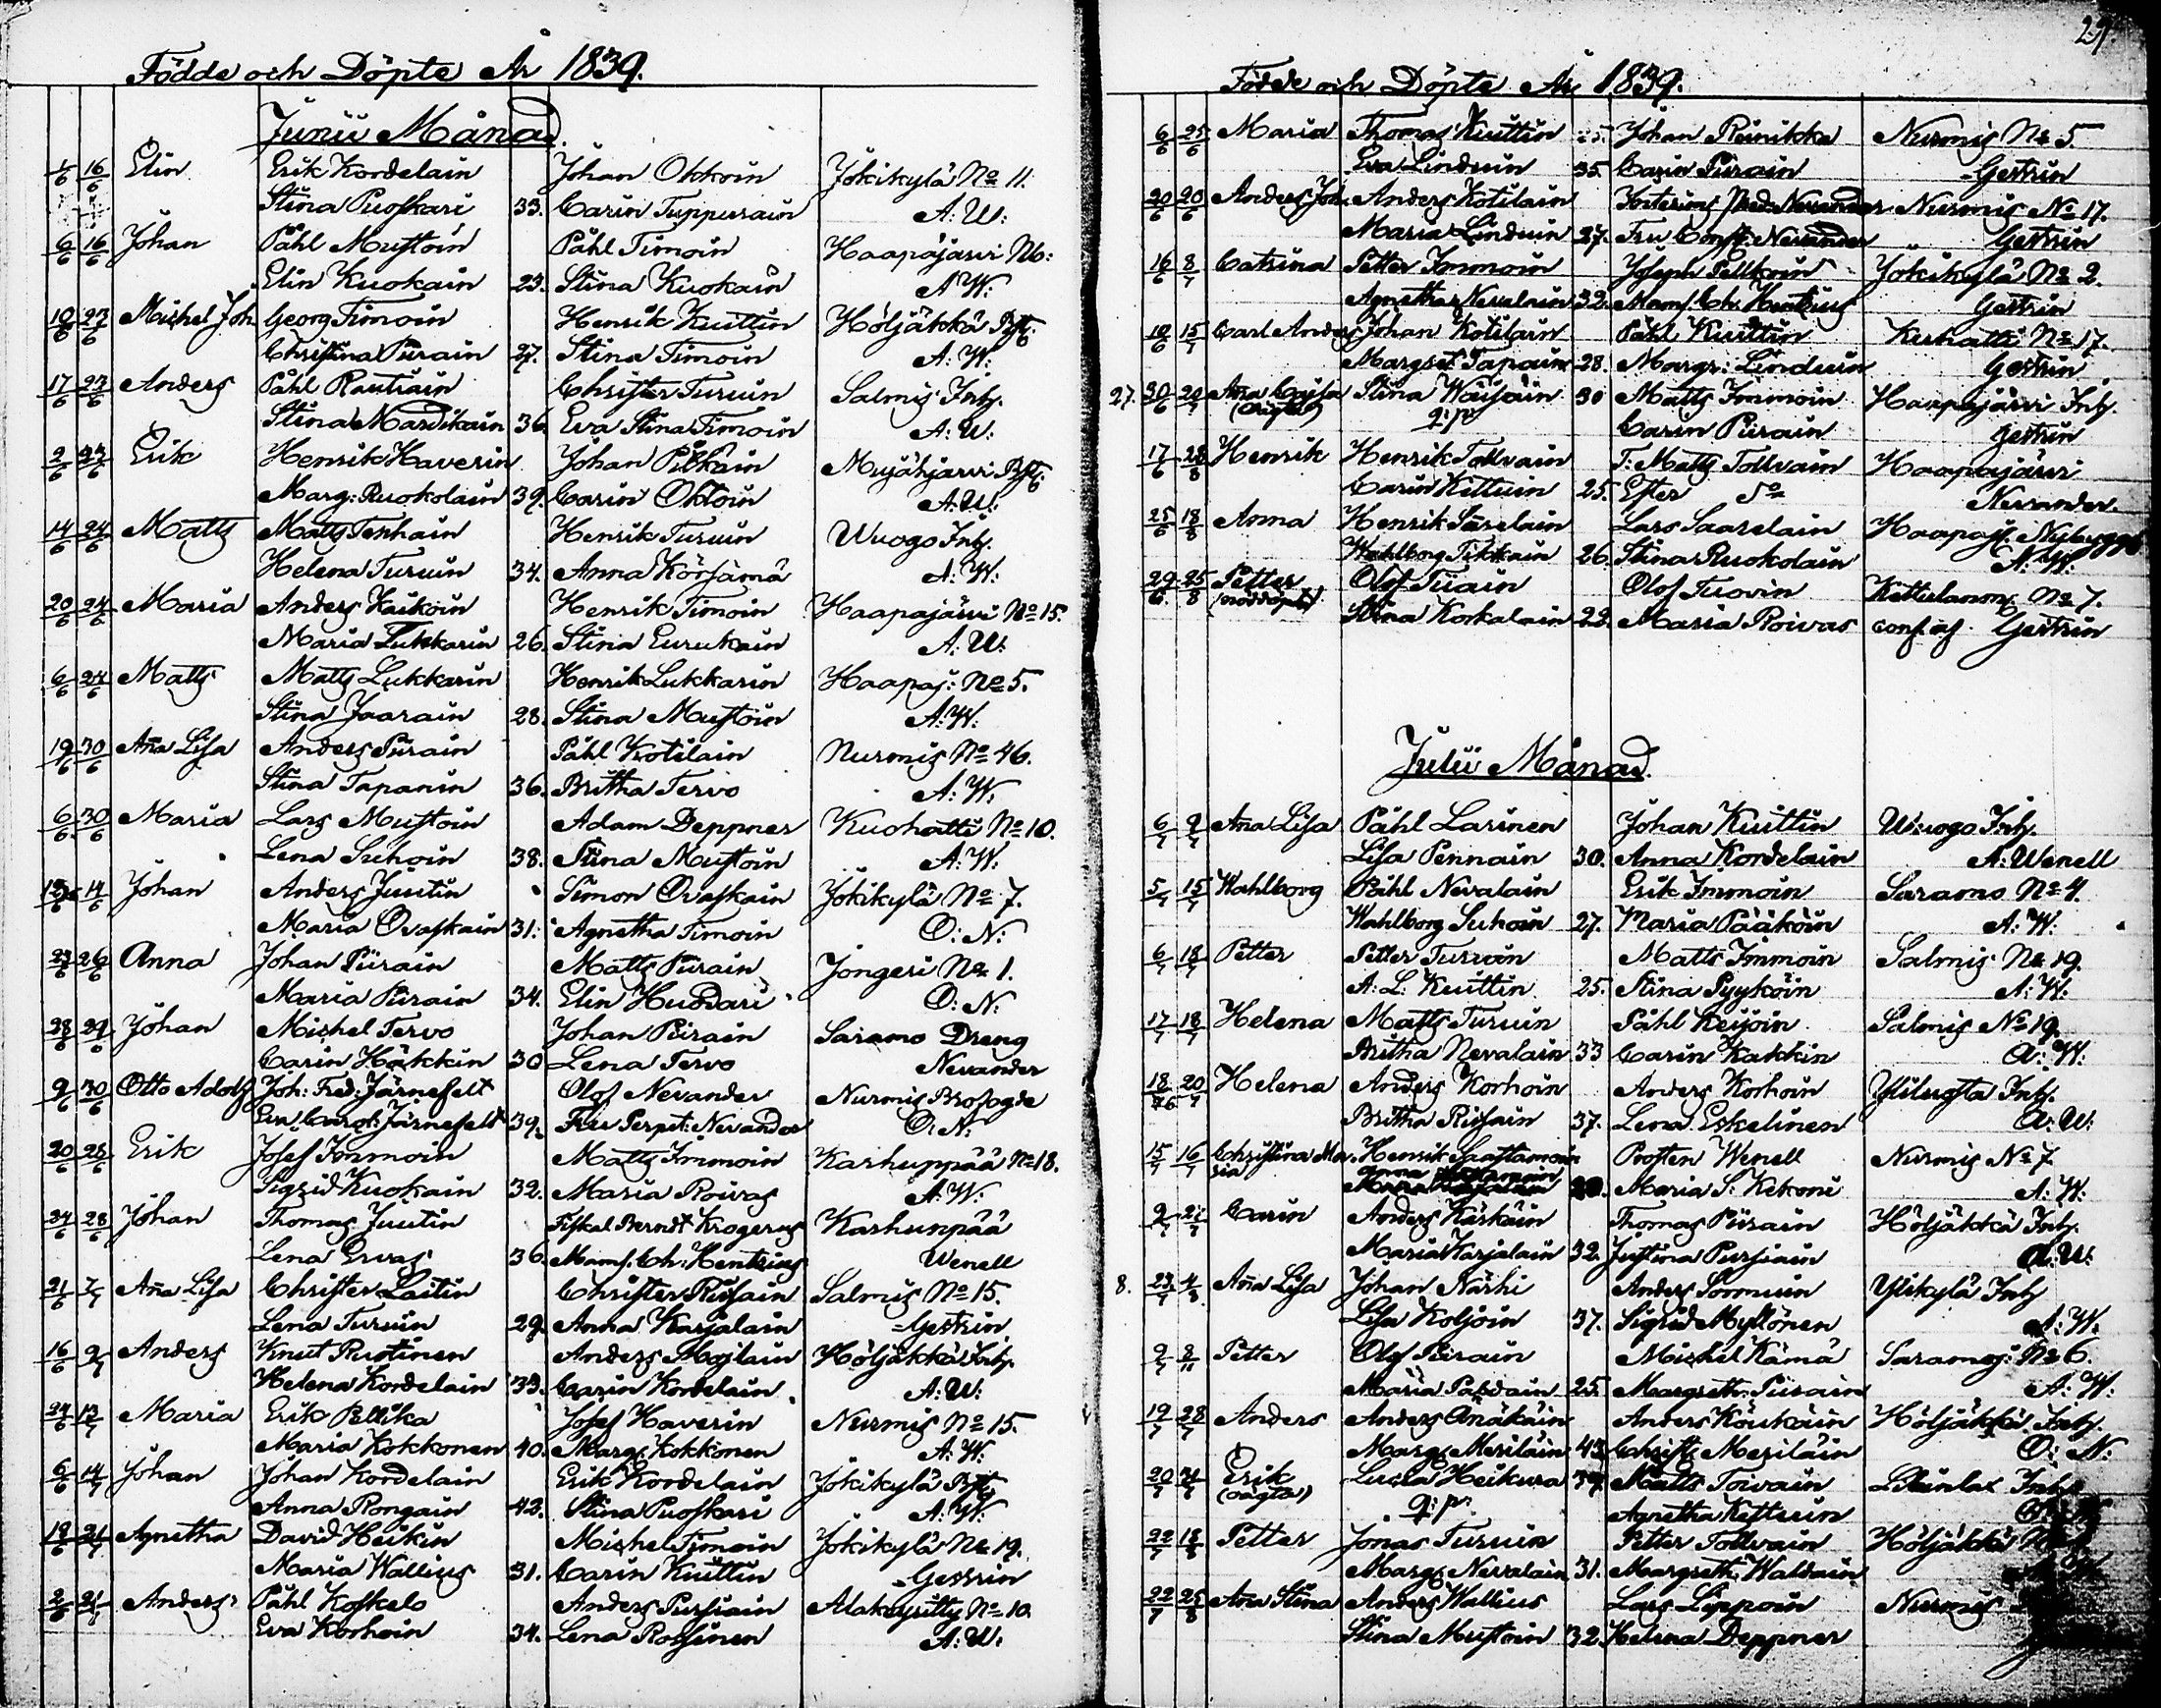 Födde och Döpte År 1839.
Junii Månad.
1/6 16/6 Elin Erik Kordelain Johan Okkoin Jokikylä No 11.
Stina Puoskari 33. Carin Tuppurain A: W:
6/6 16/6 Johan Påhl Mustoin Påhl Timoin Haapajärvi No 6:
Elin Kuokain 23. Stina Kuokain A W:
10/6 23/6 Michel Joh Georg Timoin Henrik Kuittin Höljäkkä
Christina Piirain 27. Stina Timoin A: W.
17/6 23/6 Anders Påhl Rautiain Christer Turuin Salmis Inh.
Stina Mardikain 36. Eva Stina Timoin A: W:
2/6 Erik Henrik Haverin Johan Pitkäin Mujähjärvi
Marg: Ruokolain 39. Carin Oktoin A: W:
14/6 24/6 Matts Matts Tenhain Henrik Turuin Wuogo Inh.
Helena Turuin 34. Anna Körjämä A: W:
20/6 24/6 Maria Anders Kaikoin Henrik Timoin Haapajärvi No 15.
Maria Lukkarin 26. Stina Eurukain A: W:
6/6 24/6 Matts Matts Lukkarin Henrik Lukkarin Haapaj: No 5.
Stina Jaarain 28. Stina Mustoin A: W:
19/6 30/6 Aña Lisa Anders Piirain Påhl Kotilain Nurmis No 46.
Stina Tapanin 36. Britha Tervo A: W:
6/6 30/6 Maria Lars Mustoin Adam Deppner Kuohatti No 10.
Lena Suhoin 38. Stina Mustoin A: W:
14/6 Johan Anders Juutin Simon Ovaskain Jokikylä No 7.
Maria Ovaskain 31. Agnetha Timoin O: N:
23/6 26/6 Anna Johan Piirain Matts Piirain Jongeri No 1.
Maria Piirain 34. Elin Huddari O: N:
28/6 29/6 Johan Michel Tervo Johan Piirain Saramo Dreng
Carin Häkkin 30 Lena Tervo Nevander
9/6 30/6 Otto Adolf Joh: Fred: Järnefelt Olof Nevander Nurmis Brofogde
Eva Carol: Järnefelt 39. Fru Perpet: Nevander O: N:
20/6 Erik Josef Immoin Matts Immoin Karhuppää No 18.
Sigrid Kuokain 32. Maria Roivas A: W:
24/6 28/6 Johan Thomas Juutin Fiskal Berndt Krogerus Karhunpää
Lena Ervas 36. Mams. Ch: Hentzius Wenell
21/6 7/7 Aña Lisa Christer Laitin Christer Riisain Salmis No 15.
Lena Turuin 29. Anna Karjalain Gestrin
16/6 9/7 Anders Knut Ruotinen Anders Moilain Höljäkkä Inh.
Helena Kordelain 33. Carin Kordelain A: W:
24/6 13/7 Maria Erik Pellika Josef Haverin Nurmis No 15.
Maria Kokkonen 40. Marg: Kokkonen A: W:
6/6 14/7 Johan Johan Kordelain Erik Kordelain Jokikylä
Anna Rongain 42. Stina Puoskari A: W:
18/6 21/7 Agnetha David Heikin Michel Timoin Jokikylä No 19.
Maria Wallius 31. Carin Kuittin Gestrin
2/6 Anders Påhl Koskelo Anders Pursiain Alakeyritty No 10.
Eva Korhoin 34. Lena Rossinen A: W:
29.
Födde och Döpte År 1839.
6/6 25/6 Maria Thomas Kuittin 25. Johan Reinikka Nurmis No 5.
Eva Linduin 35. Carin Piirain Gestrin
20/6 20/6 Anders Joh. Anders Kotilain Nevander Nurmis No 17.
Maria Linduin 27. Fru Const: Nevander " Gestrin
16/6 8/7 Catrina Petter Immoin Joseph Pellkoin Jokikylä No 2.
Agnetha Nevalain 32. Mams. Ch. Hentzius Gestrin
10/6 15/7 Carl Anders Johan Kotilain Påhl Kuittin Kuohatti No 17.
Margret Tapanin 28. Margr: Linduin Gestrin
27. 30/6 20/7 Aña Cajsa Stina Wäisäin 30 Matts Immoin Haapajärvi Inh.
(Oägta) q: p: Carin Piirain Gestrin
17/6 28/8 Henrik Henrik Tollvain T: Matts Tollvain Haapajärvi
Carin Kettuin 25. Ester Do Nevander.
25/6 18/8 Anna Henrik Saarelain Lars Saarelain Haapaj: Nybygge
Wahlborg Tikkain 26. Stina Ruokolain A: W:
29/6 25/8 Petter Olof Tuain Olof Tuovin No 7.
(nöddöpt) Stina Korkalain 22. Maria Roivas conf: af Gestrin
Julii Månad.
6/7 9/7 Aña Lisa Påhl Larinen Johan Kuittin Wuogo Inh.
Lisa Pennain 30. Anna Kordelain A: Wenell
5/7 15/7 Wahlborg Påhl Nevalain Erik Immoin Saramo No 4.
Wahlborg Suhoin 27. Maria Pääköin A: W:
6/7 18/7 Petter Petter Turuin Matts Immoin Salmis No 19.
A: L: Kuittin 25. Stina Pyyköin A: W:
17/7 18/7 Helena Matts Turuin Påhl Keijoin Salmis No 19.
Britha Nevalain 33 Carin Kakkin A: W:
18/7 20/7 Helena Anders Korhoin Anders Korhoin Ylilugta Inh.
Britha Riisain 37. Lena Eskelinen A: W:
15/7 16/7 Christina Ma- Henrik Saastamoin Prosten Wenell Nurmis No 7
ria Anna Maria S. Kekoni A: W:
9/7 21/7 Carin Anders Käskäin Thomas Piirain Höljäkkä Inh.
Maria Karjalain 32. Justina Pursiain A: W:
8. 23/7 4/8 Aña Lisa Johan Närhi Anders Sormuin Ylikylä Inh
Lisa Koljoin 37. Sigrid Myllönen A: W:
9/7 Petter Olof Piirain Michel Kämä Saramoj: No 6.
Maria Pardain 25. Margreth: Piirain A: W:
19/7 28/7 Anders Anders Änäkäin Anders Köukäin Höljäkkä Inh.
Marg: Meriläin 43 Christ: Meriläin O: N:
20/7 Erik Lucia Heikura 34. Matts Toivain Inh.
(oägta) q: p: Agnetha Kettuin
22/7 18/8 Petter Jonas Turuin Petter Tollvain Höljäkkä
Marg: Nevalain 31. Margreth: Waldain
22/7 25/8 Aña Stina Anders Wallius Lars Lippoin Nurmis
Stina Mustoin 32. Helena Deppner